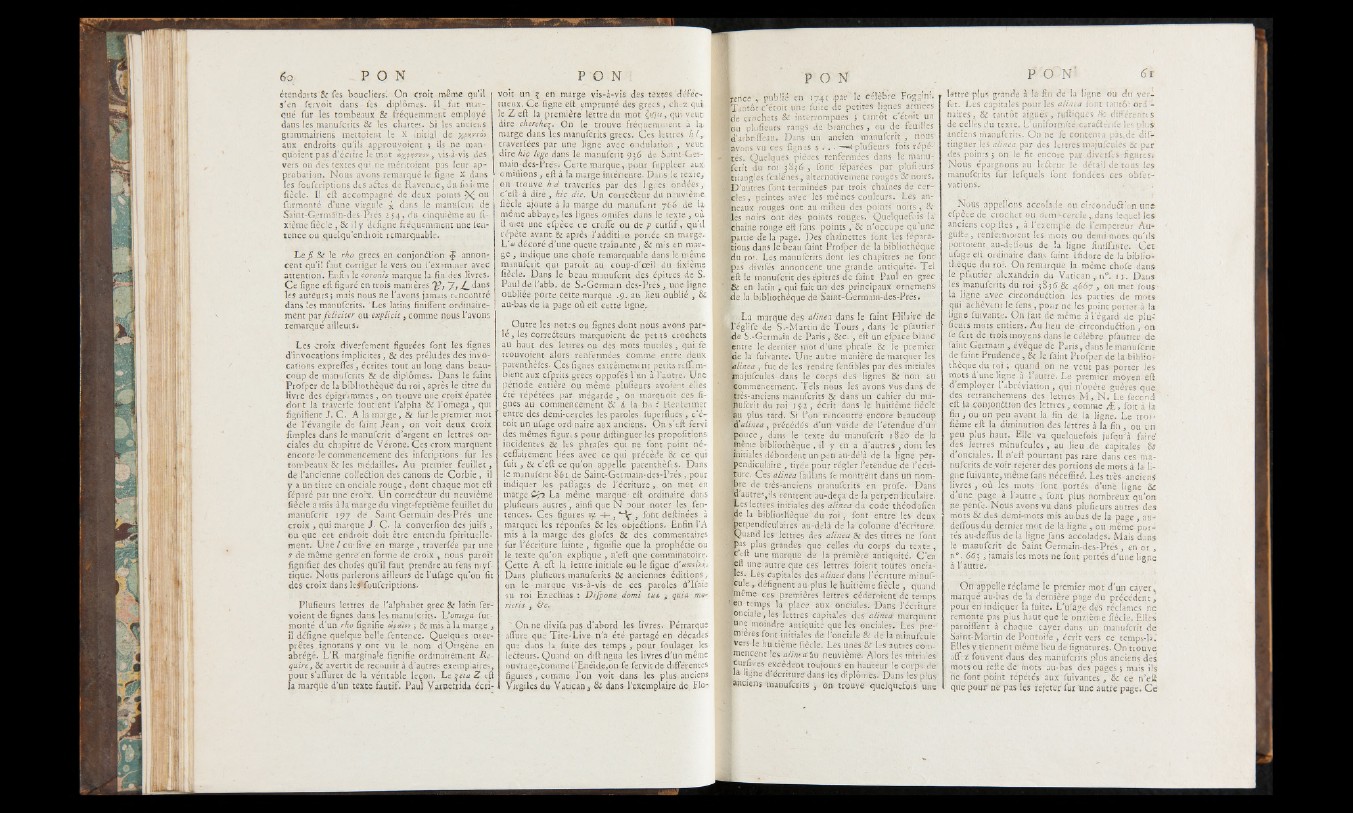 60 PON PON
étendarts & ses boucliers. On croit même qu'il
s'en servoit dans ses diplômes. Il fut mar-
qué sur les tombeaux & fréquemment employé
dans les manuscrits & les chartes. Si les anciens
grammairiens mettoient le X initial de
aux endroits qu'ils approuvoient ; ils ne man-
quoient pas d'écrire le mot vis-à-vis des
vers ou des textes qui ne méritoient pas leur ap-
probation. Nous avons remarqué le signe X dans
les souscriptions des actes de Ravenne, du sixième
siècle. Il est accompagné de deux points ou
surmonté d'une virgule dans le manuscrit de
Saint-Germain-des-Prés 254, du cinquième au si-
xième siècle, & il y désigne fréquemment une sen-
tence ou quelqu'endroit remarquable.
Le & le rho grecs en conjonction annon-
cent qu'il faut corriger le vers ou l'examiner avec
attention. Enfin le coronis marque la fin des livres.
Ce signe est figuré en trois manières dans
les auteurs ; mais nous ne l'avons jamais rencontré
dans les manuscrits. Les latins finissent ordinaire-
ment par feliciter ou explicit, comme nous l'avons
remarqué ailleurs.
Les croix diversement figurées sont les signes
d'invocations implicites, & des préludes des invo-
cations expresses, écrites tout au long dans beau-
coup de manuscrits & de diplômes. Dans le saint
Prosper de la bibliothèque du roi, après le titre du
livre des épigrammes, on trouve une croix pattée
dont la traverse soutient l'alpha & l'omega, qui
signifient J. C. A la marge, & sur le premier mot
de l'évangile de saint Jean, on voit deux croix
simples dans le manuscrit d'argent en lettres on-
ciales du chapitre de Vérone. Ces croix marquent
encore le commencement des inscriptions sur les
tombeaux & les médailles. Au premier feuillet,
de l'ancienne collection des canons de Corbie, il
y a un titre en onciale rouge, dont chaque mot est
séparé par une croix. Un correcteur du neuvième
siècle a mis à la marge du vingt-septième feuillet du
manuscrit 197 de Saint-Germain-des-Prés une
croix, qui marque J. C. la conversion des juifs,
ou que cet endroit doit être entendu spirituelle-
ment. Une l cursive en marge, traversée par une
s de même genre en forme de croix, nous paroît
signifier des choses qu'il faut prendre au sens mys-
tique. Nous parlerons ailleurs de l'usage qu'on fit
des croix dans les souscriptions.
Plusieurs lettres de l'alphabet grec & latin ser-
voient de signes dans les manuscrits. L'omega sur
monté d'un rho signifie , & mis à la marge,
il désigne quelque belle sentence. Quelques inter-
prètes ignorans y ont vu le nom d'Origène en
abrégé. L'R marginale signifie ordinairement Re-
quire, & avertit de recourir à d'autres exemplaires,
pour s'assurer de la véritable leçon. Le zeta Z est
la marque d'un texte fautif. Paul Varnefrida écri-
voit un z en marge vis-à-vis des textes défec-
tueux. Ce signe est emprunté des grecs, chez qui
le Z est la première lettre du mot , qui veut
dire cherchez. On le trouve fréquemment à la
marge dans les manuscrits grecs. Ces lettres hl,
traversées par une ligne avec ondulation, veut
dire hic lege dans le manuscrit 936 de Saint-Ger-
main-des-Prés. Cette marque, pour suppléer aux
omissions, est à la marge intérieure. Dans le texte,
on trouve hd traversées par des lignes ondées,
c'est-à-dire, hic dic. Un correcteur du neuvième
siècle ajoute à la marge du manuscrit 766 de la
même abbaye, les lignes omises dans le texte, où
il met une espèce de crosse ou de p cursif, qu'il
répète avant & après l'addition portée en marge.
L'u décoré d'une queue traînante, & mis en mar-
ge, indique une chose remarquable dans le même
manuscrit qui paroît au coup-d'œil du sixième
siècle. Dans le beau manuscrit des épîtres de S.
Paul de l'abb. de S.-Germain-des-Prés, une ligne
oubliée porte cette marque .9. au lieu oublié, &
au-bas de la page où est cette ligne.
Outre les notes ou signes dont nous avons par-
lé, les correcteurs marquoient de petits crochets
au haut des lettres ou des mots inutiles, qui se
trouvoient alors renfermées comme entre deux
parenthèses. Ces signes extrêmement petits ressem-
blent aux esprits grecs opposés l'un à l'autre. Une
période entière ou même plusieurs avoient-elles
été répétées par mégarde, on marquoit ces si-
gnes au commencement & à la fin. Renfermer
entre des demi-cercles les paroles superflues, c'é-
toit un usage ordinaire aux anciens. On s'est servi
des mêmes figures pour distinguer les propositions
incidentes & les phrases qui ne sont point né-
cessairement liées avec ce qui précède & ce qui
suit, & c'est ce qu'on appelle parenthèses. Dans
le manuscrit 861 de Saint-Germain-des-Prés, pour
indiquer les passages de l'écriture, on met en
marge La même marque est ordinaire dans
plusieurs autres, ainsi que N pour noter les sen-
tences. Ces figures sont destinées à
marquer les réponses & les objections. Enfin l'A
mis à la marge des gloses & des commentaires
sur l'écriture sainte, signifie que la prophétie ou
le texte qu'on explique, n'est que comminatoire.
Cette A est la lettre initiale ou le signe d'
Dans plusieurs manuscrits & anciennes éditions,
on le marque vis-à-vis de ces paroles d'Isaïe
au roi Ezechias : Dispone domi tuæ, quia mo-
rieris, &c.
On ne divisa pas d'abord les livres. Pétrarque
assure que Tite-Live n'a été partagé en décades
que dans la suite des temps, pour soulager les
lecteurs. Quand on distingua les livres d'un même
ouvrage, comme l'Enéide, on se servit de différentes
figures, comme l'on voit dans les plus anciens
Virgiles du Vatican, & dans l'exemplaire de Flo-
PON PON 61
rence, publié en 1741 par le célèbre Foggini.
Tantôt c'étoit une suite de petites lignes armées
de crochets & interrompues ; tantôt c'étoit un
ou plusieurs rangs de branches, ou de feuilles
d'arbrisseau. Dans un ancien manuscrit, nous
avons vu ces signes s . . . plusieurs fois répé-
tés. Quelques pièces renfermées dans le manu-
scrit du roi 2836, sont séparées par plusieurs
triangles scalènes, alternativement rouges & noirs.
D'autres sont terminées par trois chaînes de cer-
cles, peintes avec les mêmes couleurs. Les an-
neaux rouges ont au milieu des points noirs, &
les noirs ont des points rouges. Quelquefois la
chaîne rouge est sans points, & n'occupe qu'une
partie de la page. Des chaînettes font les sépara-
tions dans le beau saint Prosper de la bibliothèque
du roi. Les manuscrits dont les chapitres ne sont
pas divisés annoncent une grande antiquité. Tel
est le manuscrit des épîtres de saint Paul en grec
& en latin, qui fait un des principaux ornemens
de la bibliothèque de Saint-Germain-des-Prés.
La marque des alinea dans le saint Hilaire de
l'église de S.-Martin de Tours, dans le psautier
de S.-Germain de Paris, &c., est un espace blanc
entre le dernier mot d'une phrase & le premier
de la suivante. Une autre manière de marquer les
alinea, fut de les rendre sensibles par des initiales
majuscules dans le corps des lignes & non au
commencement. Tels nous les avons vus dans de
très-anciens manuscrits & dans un cahier du ma-
nuscrit du roi 152, écrit dans le huitième siècle
au plus tard. Si l'on rencontre encore beaucoup
d'alinea, précédés d'un vuide de l'étendue d'un
pouce, dans le texte du manuscrit 1820 de la
même bibliothèque, il y en a d'autres, dont les
initiales débordent un peu au-delà de la ligne per-
pendiculaire, tirée pour régler l'étendue de l'écri-
ture. Ces alinea saillans se montrent dans un nom-
bre de très-anciens manuscrits en prose. Dans
d'autres, ils rentrent au-deça de la perpendiculaire.
Les lettres initiales des alinea du code théodosien
de la bibliothèque du roi, sont entre les deux
perpendiculaires au-delà de la colonne d'écriture.
Quand les lettres des alinea & des titres ne sont
pas plus grandes que celles du corps du texte,
c'est une marque de la première antiquité. C'en
est une autre que ces lettres soient toutes oncia-
les. Les capitales des alinea dans l'écriture minus-
cule, désignent au plus le huitième siècle, quand
même ces premières lettres céderoient de temps
en temps la place aux onciales. Dans l'écriture
onciale, les lettres capitales des alinea marquent
une moindre antiquité que les onciales. Les pre-
mières sont initiales de l'onciale & de la minuscule
vers le huitième siècle. Les unes & les autres com-
mencent les alinea au neuvième. Alors les initiales
cursives excèdent toujours en hauteur le corps de
la ligne d'écriture dans les diplômes. Dans les plus
anciens manuscrits, on trouve quelquefois une
lettre plus grande à la fin de la ligne ou du ver-
set. Les capitales pour les alinea sont tantôt ordi-
naires, & tantôt aigues, rustiques & différentes
de celles du texte. L'uniformité caractérise les plus
anciens manuscrits. On ne se contenta pas de dis-
tinguer les alinea par des lettres majuscules & par
des points ; on le fit encore par diverses figures.
Nous épargnons au lecteur le détail de tous les
manuscrits sur lesquels sont fondées ces obser-
vations.
Nous appellons accolade ou circonduction une
espèce de crochet ou demi-cercle, dans lequel les
anciens copistes, à l'exemple de l'empereur Au-
guste, renfermoient les mots ou demi-mots qu'ils
portoient au-dessous de la ligne finissante. Cet
usage est ordinaire dans saint Isidore de la biblio-
thèque du roi. On remarque la même chose dans
le psautier alexandrin du Vatican, n°. 13. Dans
les manuscrits du roi 3836 & 4667, on met sous
la ligne avec circonduction les parties de mots
qui achèvent le sens, pour ne les point porter à la
ligne suivante. On fait de même à l'égard de plu-
sieurs mots entiers. Au lieu de circonduction, on
se sert de trois moyens dans le célèbre psautier de
saint Germain, évêque de Paris, dans le manuscrit
de saint Prudence, & le saint Prosper de la biblio-
thèque du roi, quand on ne veut pas porter les
mots d'une ligne à l'autre. Le premier moyen est
d'employer l'abréviation, qui n'opère guères que
des retranchemens des lettres M, N. Le second
est la conjonction des lettres, comme Æ, soit à la
fin, ou un peu avant la fin de la ligne. Le troi-
sième est la diminution des lettres à la fin, ou un
peu plus haut. Elle va quelquefois jusqu'à faire
des lettres minuscules, au lieu de capitales &
d'onciales. Il n'est pourtant pas rare dans ces ma-
nuscrits de voir rejeter des portions de mots à la li-
gne suivante, même sans nécessité. Les très-anciens
livres, où les mots sont portés d'une ligne &
d'une page à l'autre, sont plus nombreux qu'on
ne pense. Nous avons vu dans plusieurs autres des
mots & des demi-mots mis au-bas de la page, au-
dessous du dernier mot de la ligne, ou même por-
tés au-dessus de la ligne sans accolades. Mais dans
le manuscrit de Saint-Germain-des-Prés, en or,
n°. 663, jamais les mots ne sont portés d'une ligne
à l'autre.
On appelle réclame le premier mot d'un cayer,
marqué au-bas de la dernière page du précédent,
pour en indiquer la suite. L'usage des réclames ne
remonte pas plus haut que le onzième siècle. Elles
paroissent à chaque cayer dans un manuscrit de
Saint-Martin de Pontoise, écrit vers ce temps-là.
Elles y tiennent même lieu de signatures. On trouve
assez souvent dans des manuscrits plus anciens des
mots ou reste de mots au-bas des pages ; mais ils
ne sont point répétés aux suivantes, & ce n'est
que pour ne pas les rejeter sur une autre page. Ce